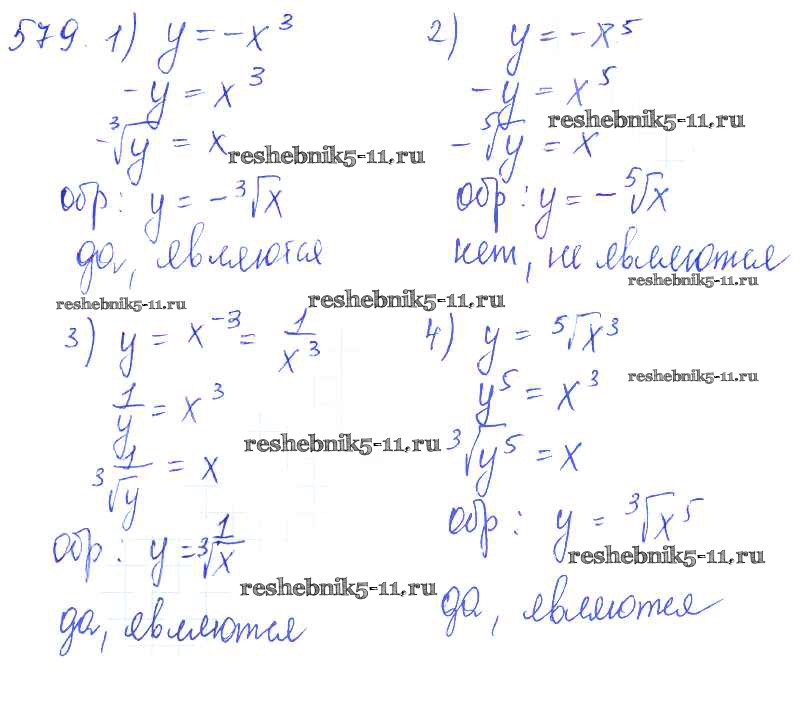 579. 1) y = -x³
-y = x³
-³√y = x
обр: y = -³√x
да, являются
2) y = -x⁵
-y = x⁵
-⁵√y = x
обр: y = -⁵√x
нет, не являются
3) y = x⁻³ = 1/x³
1/y = x³
1/³√y = x
обр: y = 1/³√x
да, являются
4) y = ⁵√x³
y⁵ = x³
³√y⁵ = x
обр: y = ³√x⁵
да, являются
reshebnik5-11.ru
reshebnik5-11.ru
reshebnik5-11.ru
reshebnik5-11.ru
reshebnik5-11.ru
reshebnik5-11.ru
reshebnik5-11.ru
reshebnik5-11.ru
reshebnik5-11.ru